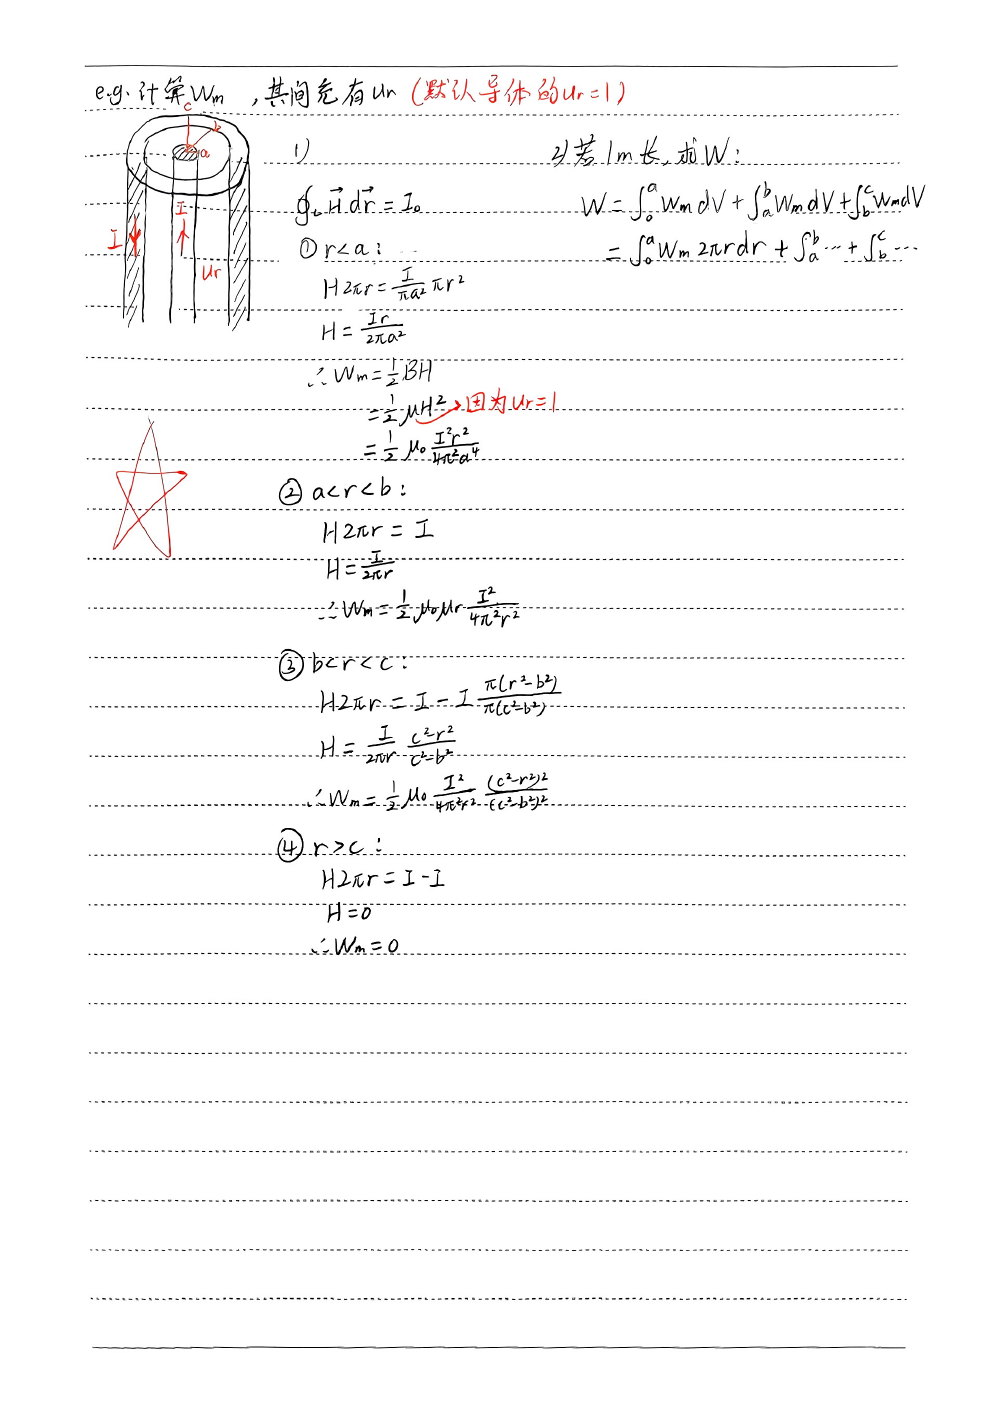 e.g. 计算Wm , 其间充有Ur (默认导体的Ur=1)
c
b
a
I
I
Ur
1)
∮L H⃗ dr⃗ = I₀
① r<a: ...
H2πr = I/πa² πr²
H = Ir/2πa²
∴ Wm = 1/2 BH
= 1/2 μH² → 因为Ur=1
= 1/2 μ₀ I²r²/4π²a⁴
② a<r<b:
H2πr = I
H = I/2πr
∴ Wm = 1/2 μ₀μr I²/4π²r²
③ b<r<c:
H2πr = I - I π(r²-b²)/π(c²-b²)
H = I/2πr c²-r²/c²-b²
∴ Wm = 1/2 μ₀ I²/4π²r² (c²-r²)²/(c²-b²)²
④ r>c:
H2πr = I-I
H=0
∴ Wm=0
2) 若1m长, 求W:
W = ∫₀ᵃ Wm dV + ∫ₐᵇ Wm dV + ∫_b^c Wm dV
= ∫₀ᵃ Wm 2πr dr + ∫ₐᵇ ... + ∫_b^c ...